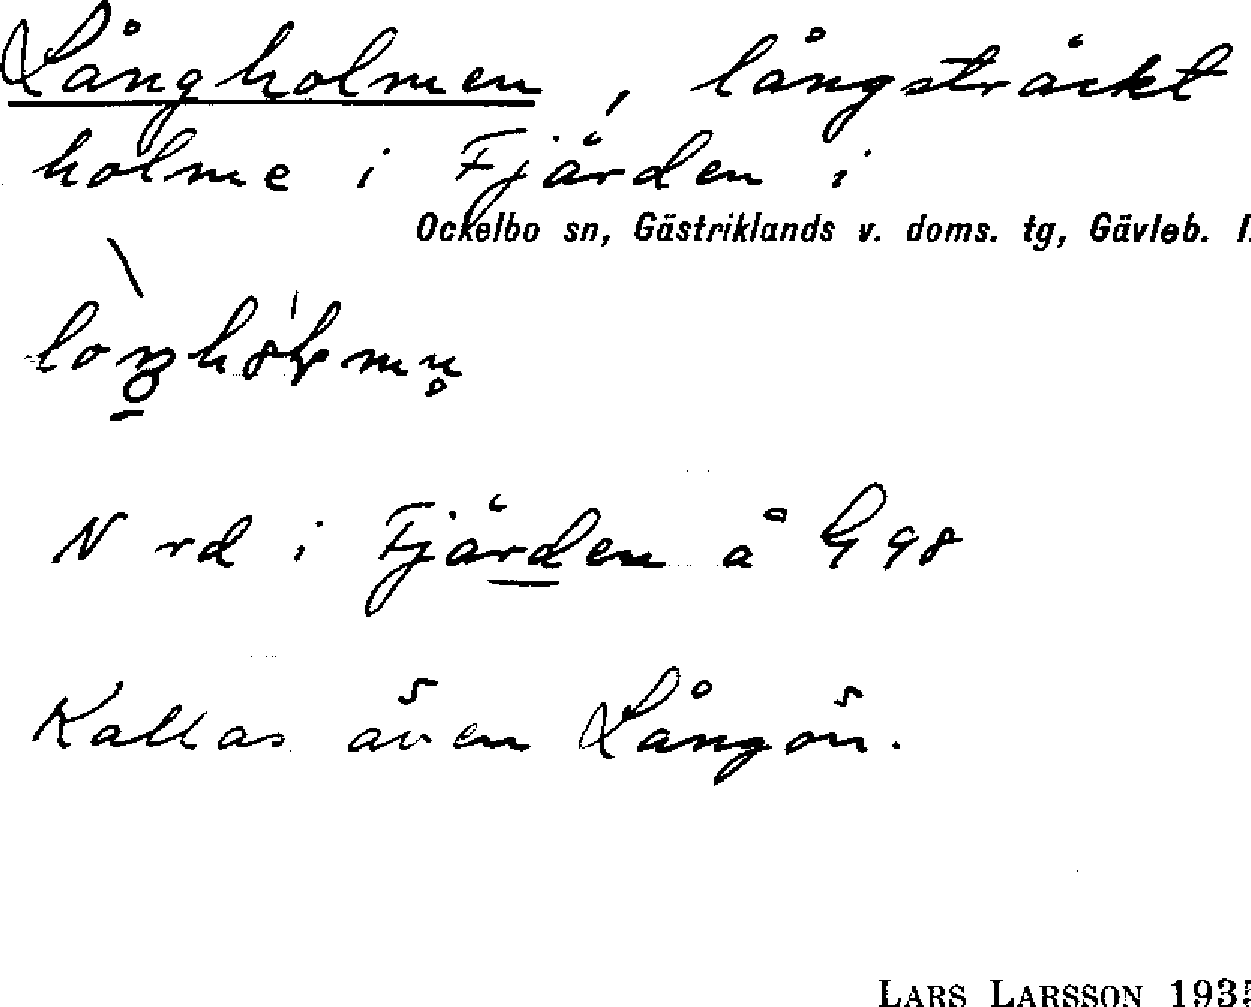 Långholmen, långsträckt
holme i Fjärden i
Ockelbo sn, Gästriklands v. doms. tg, Gävleb. l.
N rd i Fjärden å G 98
Kallas även Långön.
LARS LARSSON 193